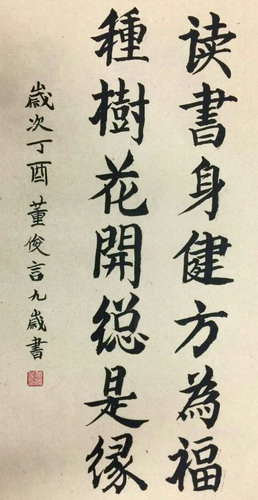 读書身健方為福
種樹花開総是緣
歲次丁酉董俊言九歲書